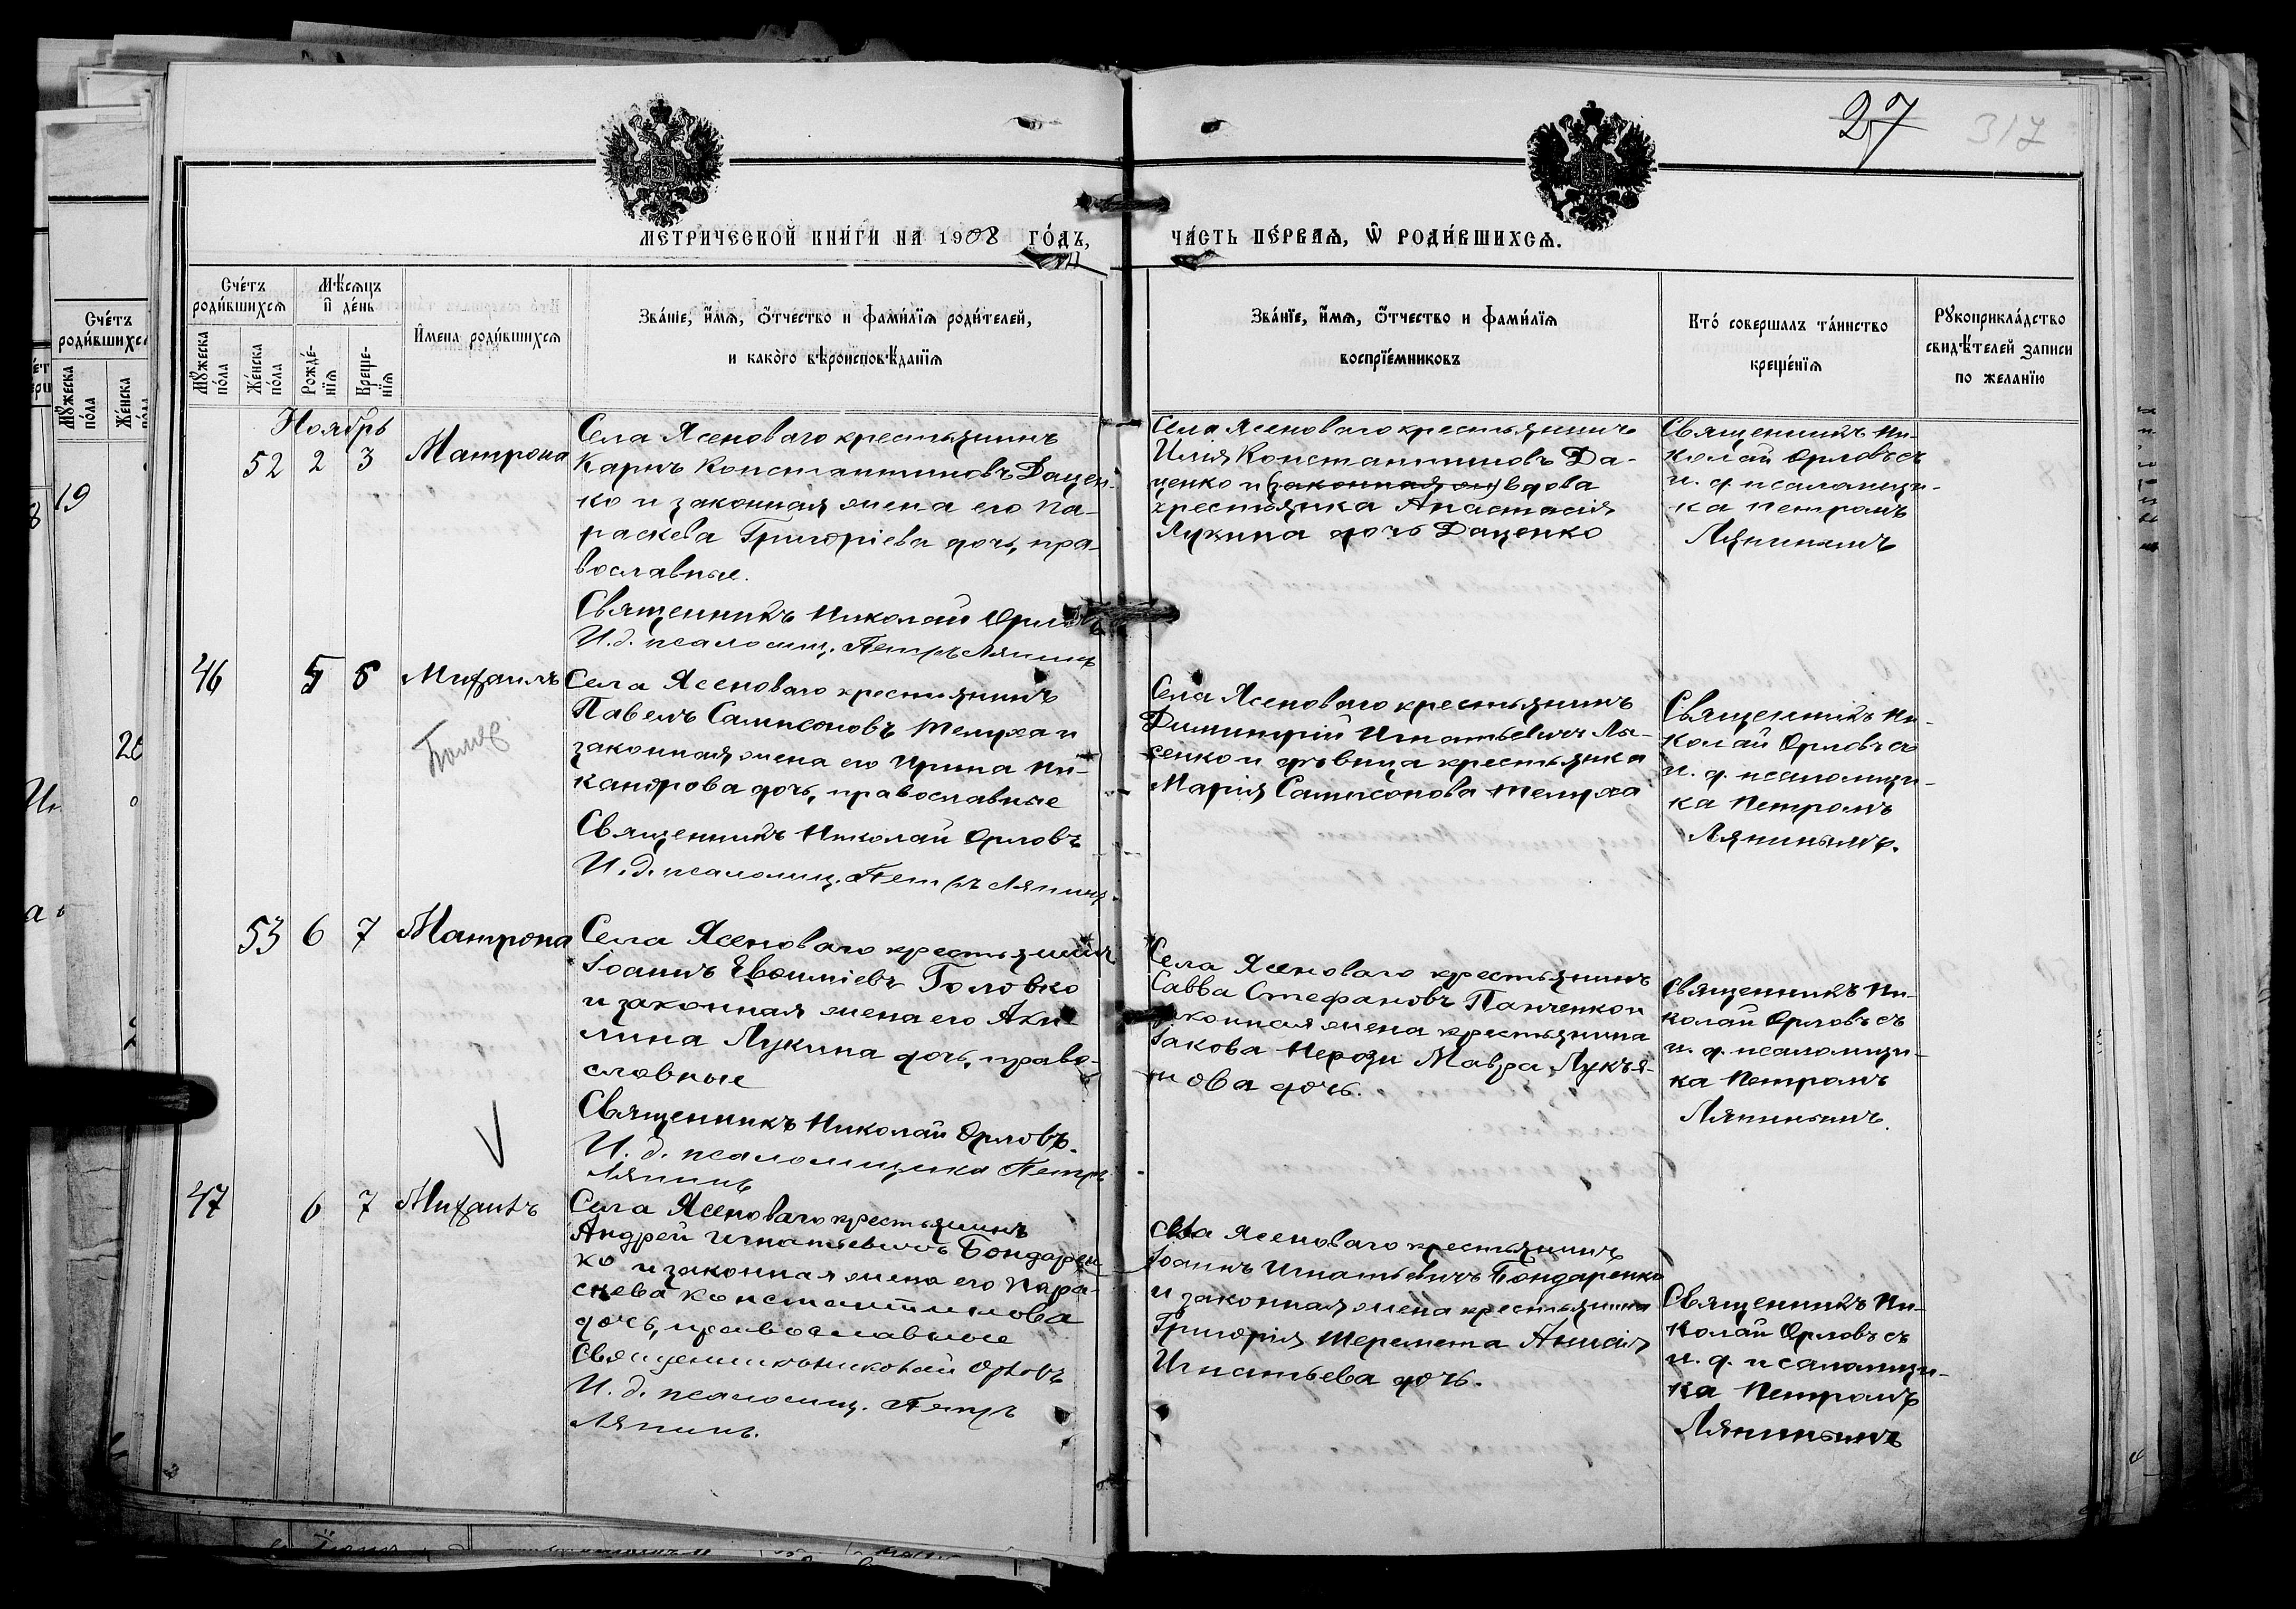 27
317
МЕТРИЧЕСКОЙ КНИ́ГИ НА 1908 ГО́ДЪ,
ЧА́СТЬ ПЕ́РВАѦ, Ѽ РОДИ́ВШИХСѦ.
Сче́тъ роди́вшихсѧ
Мꙋ́жеска по́ла
Же́нска по́ла
Мѣ́сѧцъ и҆ де́нь
Рожде́-нїѧ
Креще-нїѧ
И҆мена роди́вшихсѧ
Зва́нїе, и҆́мѧ, ѻ҆́тчество и фами́лїѧ роди́телей,
и како́го вѣроисповѣ́данїѧ
Зва́нїе, и҆́мѧ, ѻ҆́тчество и фами́лїѧ
воспрїе́мниковъ
Кто́ соверша́лъ та́инство
креще́нїѧ
Рꙋкоприкла́дство
свидѣ́телей записи
по жела́нїю
Ноябрь
52 2 3 Матрона
Села Ясеноваго крестьянинъ
Карпъ Константиновъ Дацен-
ко и законная жена его Па-
раскева Григорiева дочь, пра-
вославные.
Священникъ Николай Орловъ
И.д. псаломщ. Петръ Ляпинъ
Села Ясеноваго крестьянинъ
Илiя Константиновъ Да-
ценко и (законная жен) вдова
крестьянка Анастасiя
Лукина дочь Даценко
Священникъ Ни-
колай Орловъ съ
и. д. псаломщи-
ка Петромъ
Ляпинымъ
46 5 6 Михаилъ
Села Ясеноваго крестьянинъ
Павелъ Сампсоновъ Шелуха и
законная жена его Ирина Ни-
кандрова дочь, православные
Священникъ Николай Орловъ
И.д. псаломщ. Петръ Ляпинъ.
Села Ясеноваго крестьянинъ
Димитрiй Игнатьевичъ Лы-
сенко и дѣвица крестьянка
Марiя Сампсонова Шелуха
Священникъ Ни-
колай Орловъ съ
и. д. псаломщи-
ка Петромъ
Ляпинымъ.
53 6 7 Матрона
Села Ясеноваго крестьянинъ
Iоаннъ Евфимiевъ Головко
и законная жена его Аки-
лина Лукина дочь, право-
славные
Священникъ Николай Орловъ.
И. д. псаломщика Петръ
Ляпинъ
Села Ясеноваго крестьянинъ
Савва Стефановъ Панченко и
законная жена крестьянина
Iакова Мавра Лукъя-
нова дочь.
Священникъ Ни-
колай Орловъ съ
и. д. псаломщи-
ка Петромъ
Ляпинымъ.
47 6 7 Михаилъ
Села Ясеноваго крестьянинъ
Андрей Игнатьевичъ Бондарен-
ко и законная жена его Пара-
скева Константинова
дочь, православные
Священникъ Николай Орловъ
И. д. псаломщ. Петръ
Ляпинъ.
Села Ясеноваго крестьянинъ
Iоаннъ Игнатьевичъ Бондаренко
и законная жена крестьянина
Григорiя Шеремета Анисiя
Игнатьева дочь.
Священникъ Ни-
колай Орловъ съ
и. д. псаломщи-
ка Петромъ
Ляпинымъ